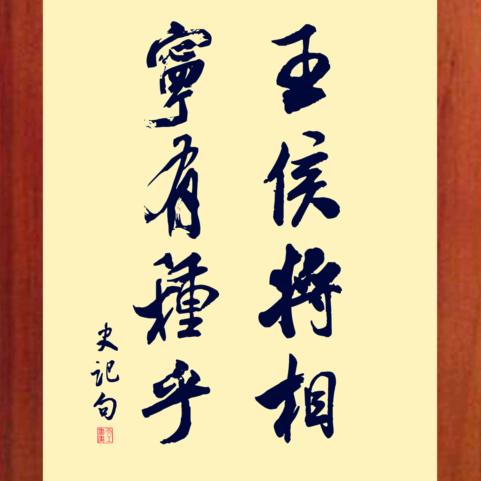 王侯將相
寧有種乎
史記句